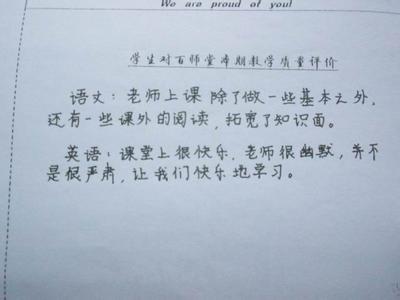 We are proud of you!
学生对百师堂本期教学质量评价
语文：老师上课除了做一些基本之外，
还有一些课外的阅读，拓宽了知识面。
英语：课堂上很快乐，老师很幽默，并不
是很严肃，让我们快乐地学习。